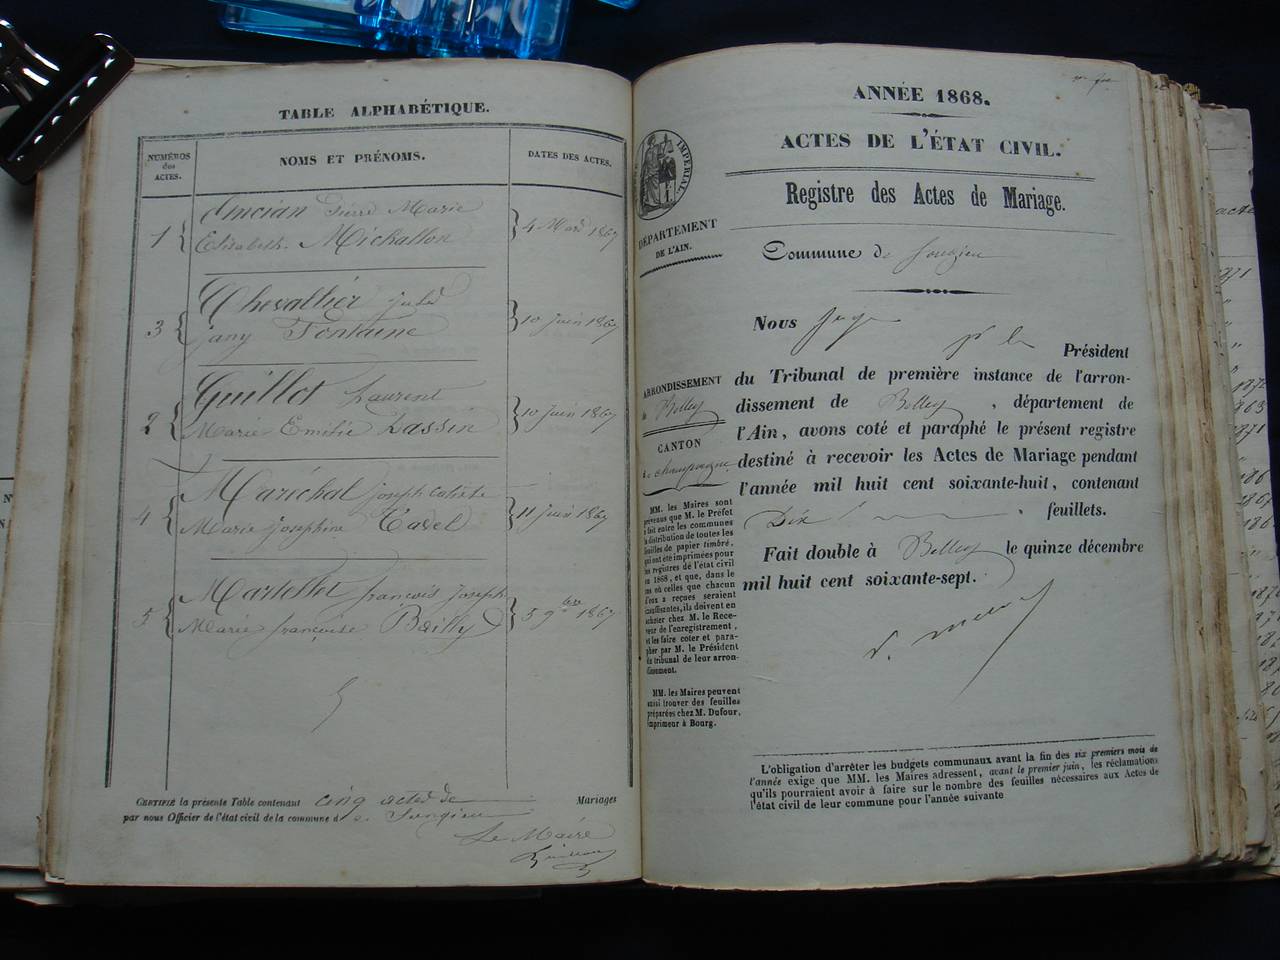 TABLE ALPHABÉTIQUE.
NUMÉROS des ACTES.
NOMS ET PRÉNOMS.
DATES DES ACTES.
1 Ancian Pierre Marie
Elisabeth Michallon
4 Mars 1867
3 Chevallier jules
jany Fontaine
10 juin 1867
2 Guillot Laurent
Marie Emilie Lassin
10 juin 1867
4 Maréchal joseph
Marie josephine Cadel
11 juin 1867
5 Martellet françois joseph
Marie françoise Bailly
5 9bre 1867
CERTIFIÉ la présente Table contenant cinq actes de Mariages
par nous Officier de l'état civil de la commune de Songieu
Le Maire
ANNÉE 1868.
ACTES DE L'ÉTAT CIVIL.
Registre des Actes de Mariage.
IMPERIAL.
DÉPARTEMENT
DE L'AIN.
Commune de Songieu
Nous juge
Président
du Tribunal de première instance de l'arron-
dissement de Belley, département de
l'Ain, avons coté et paraphé le présent registre
destiné à recevoir les Actes de Mariage pendant
l'année mil huit cent soixante-huit, contenant
Dix feuillets.
Fait double à Belley le quinze décembre
mil huit cent soixante-sept.
ARRONDISSEMENT
de Belley
CANTON
de champagne
MM. les Maires sont
prévenus que M. le Préfet
a fait entre les communes
la distribution de toutes les
feuilles de papier timbré,
qui ont été imprimées pour
les registres de l'état civil
en 1868, et que, dans le
cas où celles que chacun
d'eux a reçues seraient
insuffisantes, ils doivent en
acheter chez M. le Rece-
veur de l'enregistrement,
et les faire coter et para-
pher par M. le Président
du tribunal de leur arron-
dissement.
MM. les Maires peuvent
aussi trouver des feuilles
préparées chez M. Dufour,
imprimeur à Bourg.
L'obligation d'arrêter les budgets communaux avant la fin des six premiers mois de
l'année exige que MM. les Maires adressent, avant le premier juin, les réclamations
qu'ils pourraient avoir à faire sur le nombre des feuilles nécessaires aux Actes de
l'état civil de leur commune pour l'année suivante